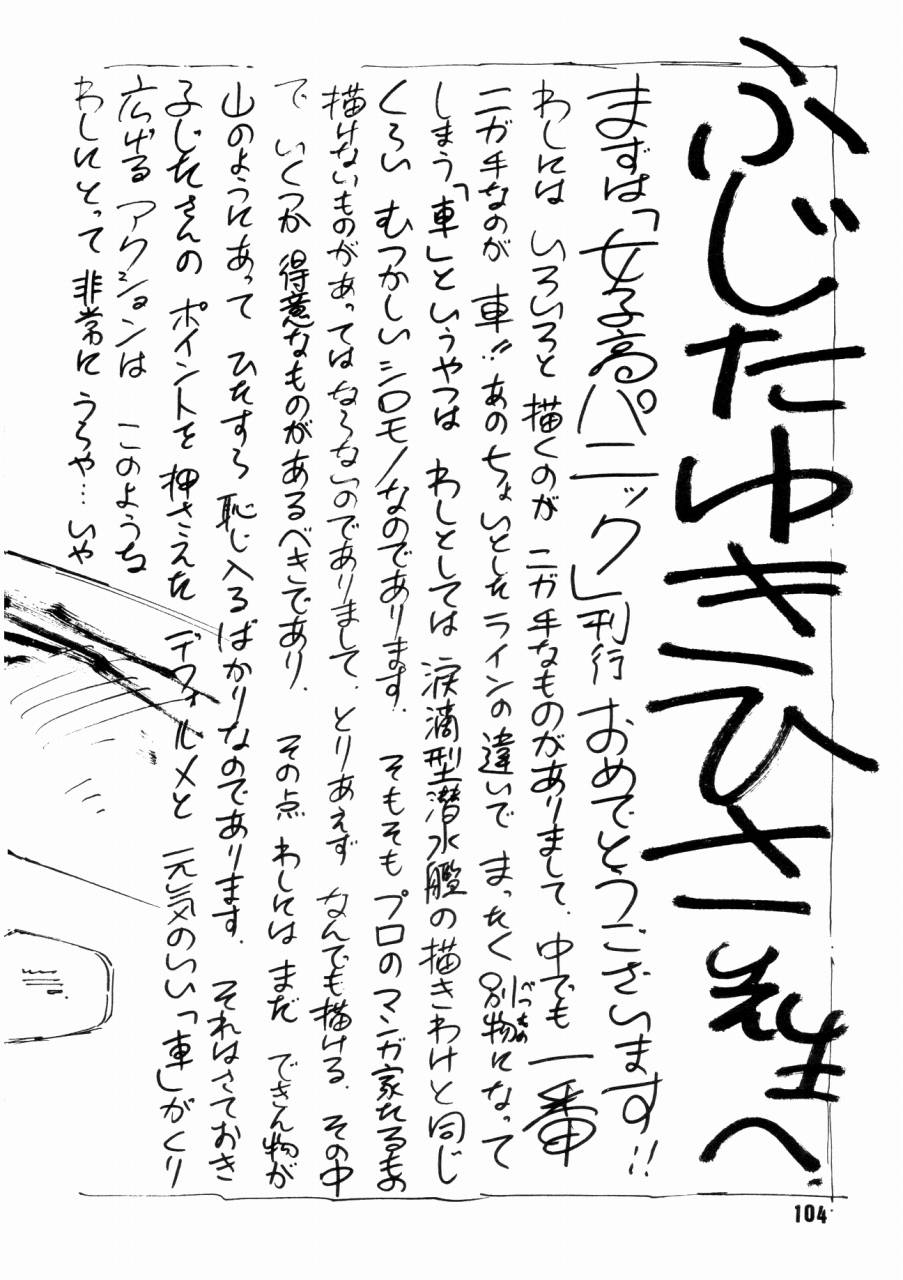 ふじたゆきひさ先生へ
まずは「女子高パニック」刊行 おめでとうございます!!
わしには いろいろと 描くのが ニガ手なものがありまして、中でも 一番
ニガ手なのが 車!! あのちょいとしたラインの違いで まったく別物になって
べつもの
しまう「車」というやつは わしとしては 涙滴型潜水艦の描きわけと同じ
くらい むつかしいシロモノなのであります。 そもそも プロのマンガ家たるもの
描けないものがあってはならないのでありまして、とりあえず なんでも描ける、その中
で いくつか 得意なものがあるべきであり、 その点 わしには まだ できん物が
山のようにあって ひたすら 恥じ入るばかりなのであります。 それはさておき
ふじたさんの ポイントを 押さえた デフォルメと 元気のいい「車」がくり
広げる アクションは このような
わしにとって 非常に うらや…いや
104